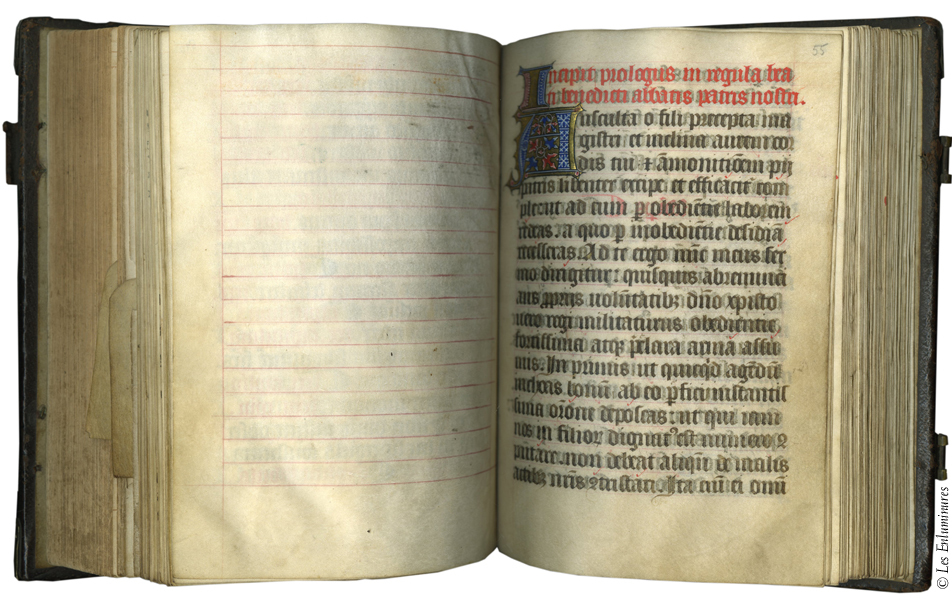 55
Incipit prologus in regula bea
ti benedicti abbatis patris nostri.
Ausculta o fili precepta ma
gistri et inclina aurem cor
dis tui ⁊ amonitiōem pii
patris libenter excipe et efficacit̄ com
ple ut ad eum ꝑ obediencie laborem
redeas a quo ꝑ inobediencie desidiā
recesseras. Ad te ergo nūc meus ser
mo dirigitur quisquis abrenunci
ans ꝓpriis volūtatibꝫ dn̄o xpisto
vero regi militaturus obediencie
fortissima atqꝫ p̄clara arma assu
mis. In primis ut quicq̇d agēdū
inchoas bonum ab eo ꝑfici instantis
sima or̄one deposcas ut qui iam
nos in filioꝝ dignatꝰ est numero ⁊
putare non debeat aliqn̄ de malis
actibꝫ nr̄is ⁊tristari. Ita eī ei omī
© Les Enluminures